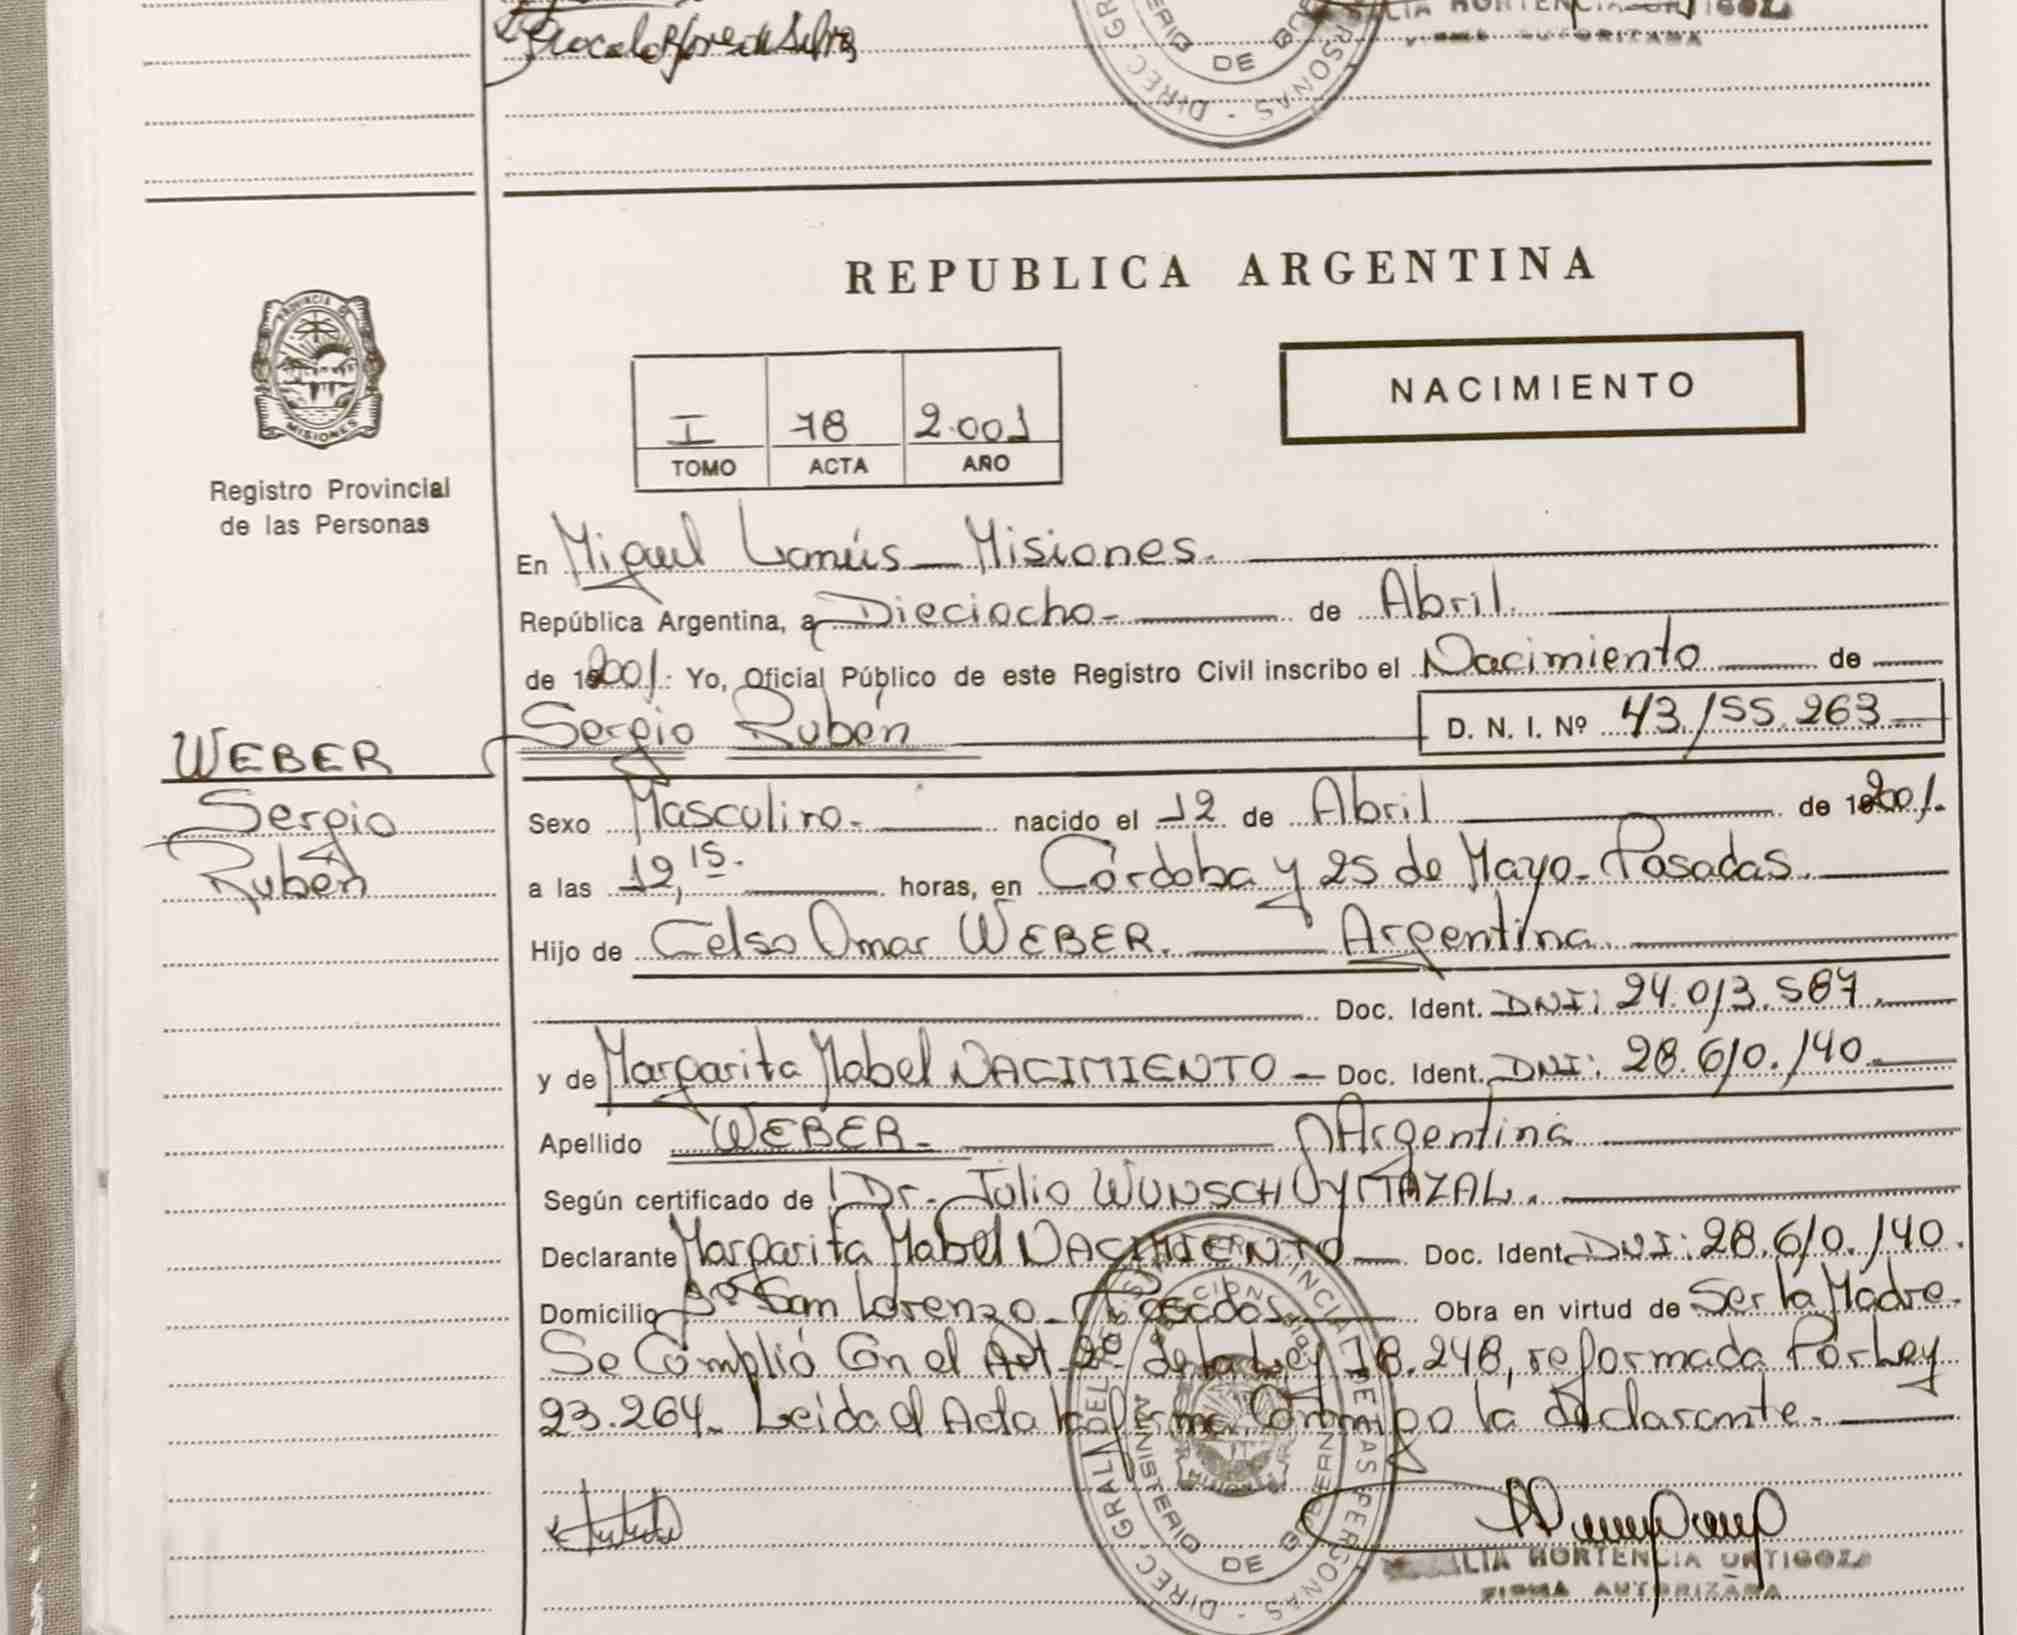 DIREC. GRAL.
ERSONAS
DE
HORTENCIA ORTIGOZA
FIRMA AUTORIZADA
REPUBLICA ARGENTINA
PROVINCIA DE
MISIONES
Registro Provincial
de las Personas
NACIMIENTO
I 78 2.001
TOMO ACTA AÑO
En Miguel Lanús - Misiones.
República Argentina, a Dieciocho - de Abril.
de 2001. Yo, Oficial Público de este Registro Civil inscribo el Nacimiento de
Sergio Rubén D. N. I. Nº 43.155.263
WEBER
Sergio
Rubén
Sexo Masculino. nacido el 12 de Abril de 2001.
a las 12,15. horas, en Córdoba y 25 de Mayo - Posadas.
Hijo de Celso Omar WEBER. Argentina
Doc. Ident. DNI: 24.013.587.
y de Margarita Mabel NACIMIENTO - Doc. Ident. DNI: 28.610.140.
Apellido WEBER. Argentina
Según certificado de Dr. Julio WUNSCH
Declarante Margarita Mabel NACIMIENTO Doc. Ident. DNI: 28.610.140.
Domicilio Bº San Lorenzo - Posadas Obra en virtud de Ser la Madre.
Se Cumplió Con el Art. 2º de la Ley 18.248, reformada Por Ley
23.264. Leida el Acta la firma Conmigo la declarante.
DIREC. GRAL. DEL REG. PROVINCIAL DE LAS PERSONAS
MINISTERIO DE GOBIERNO
HORTENCIA ORTIGOZA
FIRMA AUTORIZADA